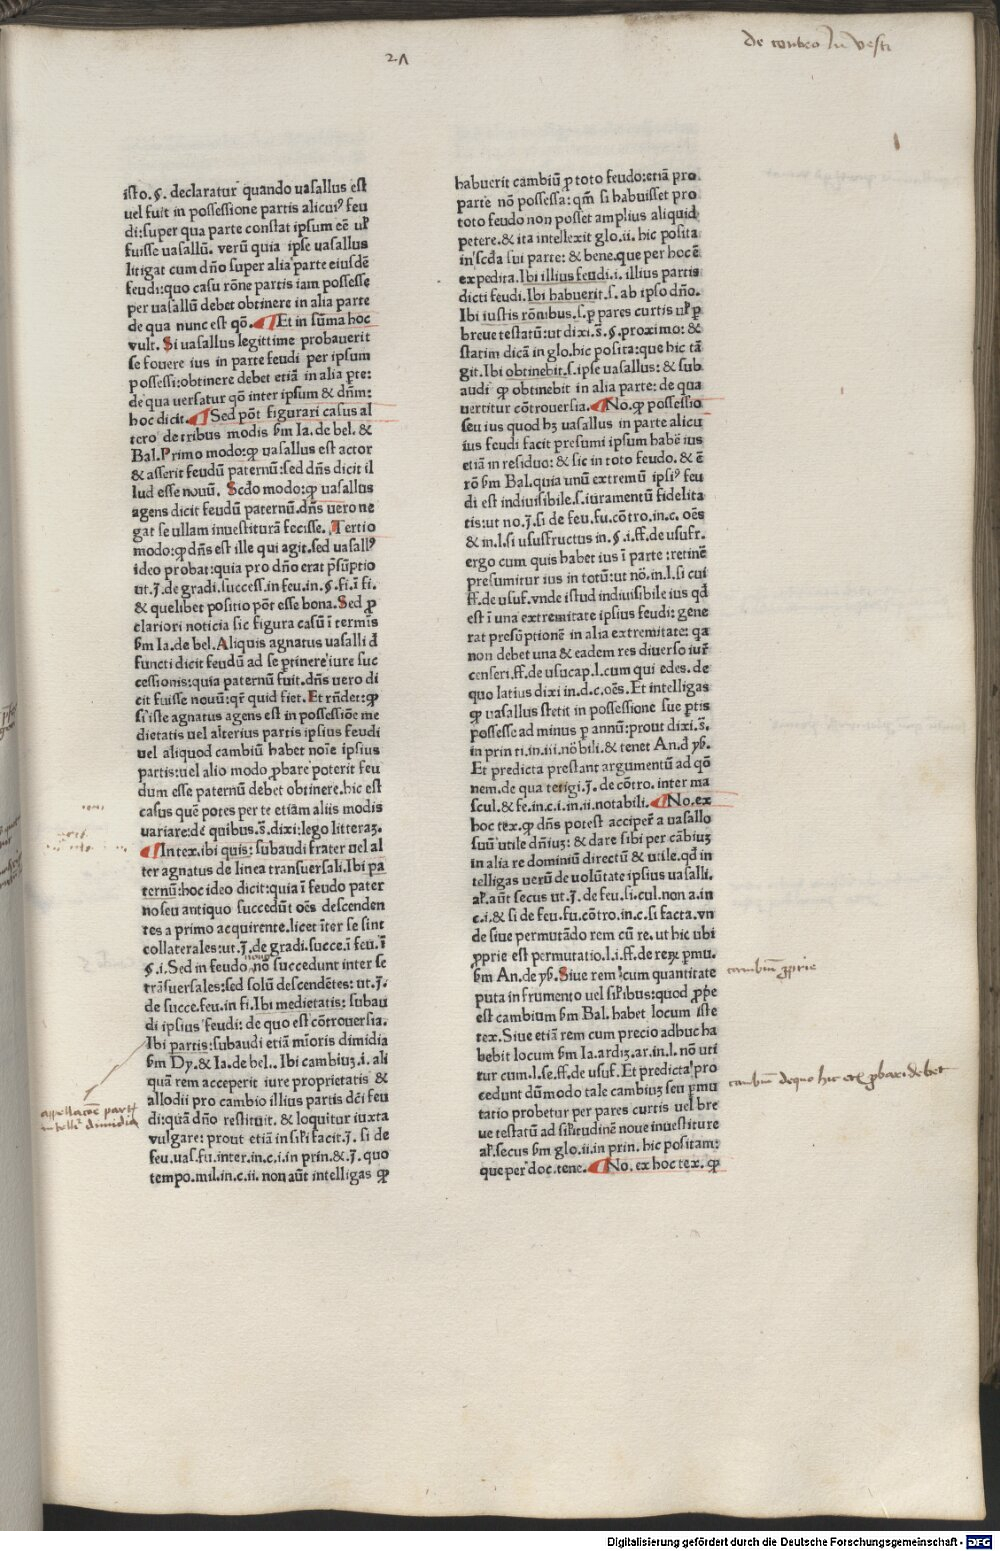 de contro In vesti
21
isto.§. declaratur quando uasallus est
uel fuit in possessione partis alicuiꝰ feu
di:super qua parte constat ipsum eē uł
fuisse uasallū. verū quia ipse uasallus
litigat cum dño super alia parte eiusdē
feudi:quo casu rōne partis iam possesse
per uasallū debet obtinere in alia parte
de qua nunc est qō. ¶Et in sūma hoc
vult. Si uasallus legittime probauerit
se fouere ius in parte feudi per ipsum
possessi:obtinere debet etiā in alia ꝑte:
de qua uersatur qō inter ipsum & dñm:
hoc dicit. ¶Sed pōt figurari casus al
tero de tribus modis ẜm Ia. de bel. &
Bal. Primo modo:ꝙ uasallus est actor
& asserit feudū paternū:sed dñs dicit il
lud esse nouū. Scdo modo:ꝙ uasallus
agens dicit feudū paternū.dñs uero ne
gat se ullam inuestiturā fecisse. Tertio
modo:ꝙ dñs est ille qui agit.sed uasallꝰ
ideo probat:quia pro dño erat p̄sūptio
ut.J.de gradi.success.in feu.in.§.fi.ī fi.
& quelibet positio pōt esse bona. Sed ꝓ
clariori noticia sic figura casū ī termīs
ẜm Ia.de bel. Aliquis agnatus uasalli d̄
functi dicit feudū ad se ꝑtinere iure suc
cessionis:quia paternū fuit.dñs uero di
cit fuisse nouū:qr̄ quid fiet. Et rn̄det:ꝙ
si iste agnatus agens est in possessiōe me
dietatis uel alterius partis ipsius feudi
uel aliquod cambiū habet noīe ipsius
partis:uel alio modo ꝓbare poterit feu
dum esse paternū debet obtinere.hic est
casus quē potes per te etiam aliis modis
uariare:de quibus.s̄.dixi:lego litteraꝫ.
¶In tex.ibi quis: subaudi frater uel al
ter agnatus de linea transuersali.Ibi pa
ternū:hoc ideo dicit:quia ī feudo pater
no seu antiquo succedūt oēs descenden
tes a primo acquirente.licet īter se sint
collaterales:ut.J.de gradi.succe.ī feu.ī
§.i.Sed in feudo nouo nō succedunt inter se
trāsuersales:sed solū descendētes: ut.J.
de succe.feu.in fi.Ibi medietatis: subau
di ipsius feudi: de quo est cōtrouersia.
Ibi partis:subaudi etiā mīoris dimidia
ẜm Dy.& Ia.de bel.. Ibi cambiuꝫ.i. ali
quā rem acceperit iure proprietatis &
allodii pro cambio illius partis dc̄i feu
di:quā dño restituit. & loquitur iuxta
vulgare: prout etiā in sił̄i facit.J. si de
feu.uas.fu.inter.in.c.i.in prin.&.J. quo
tempo.mil.in.c.ii. non aūt intelligas ꝙ
habuerit cambiū ꝓ toto feudo:etiā pro
parte nō possessa: qm̄ si habuisset pro
toto feudo non posset amplius aliquid
petere.& ita intellexit glo.ii. hic posita
in scda sui parte: & bene.que per hoc ē
expedita. Ibi illius feudi.i. illius partis
dicti feudi. Ibi habuerit.s. ab ipso dño.
Ibi iustis rōnibus.s.ꝑ pares curtis uł ꝑ
breue testatū:ut dixi.s̄.§.proximo: &
statim dicā in glo.hic posita:que hic tā
git.Ibi obtinebit.s.ipse uasallus: & sub
audi ꝙ obtinebit in alia parte: de qua
uertitur cōtrouersia. ¶No.ꝙ possessio
seu ius quod hꝫ uasallus in parte alicu
ius feudi facit presumi ipsum habē ius
etiā in residuo: & sic in toto feudo. & ē
rō ẜm Bal.quia unū extremū ipsiꝰ feu
di est indiuisibile.s.iuramentū fidelita
tis:ut no.J.si de feu.fu.cōtro.in.c. oēs
& in.l.si ususfructus in.§.i.ff.de usufr.
ergo cum quis habet ius ī parte :retinē
presumitur ius in totū:ut nō.in.l.si cui
ff.de usuf.vnde istud indiuisibile ius qd̄
est ī una extremitate ipsius feudi: gene
rat presūptionē in alia extremitate: qa
non debet una & eadem res diuerso iur̄
censeri.ff.de usucap.l.cum qui edes. de
quo latius dixi in.d.c.oēs. Et intelligas
ꝙ uasallus stetit in possessione sue ꝑtis
possesse ad minus ꝑ annū:prout dixi.s̄.
in prin ti.in.iii.nōbili.& tenet An.d̄ yẜ.
Et predicta prestant argumentū ad qō
nem.de qua tetigi.J. de cōtro. inter ma
scul.& fe.in.c.i.in.ii.notabili. ¶No.ex
hoc tex.ꝙ dñs potest acciper̄ a uasallo
suū utile dn̄iuꝫ: & dare sibi per cābiuꝫ
in alia re dominiū directū & utile.qd̄ in
telligas uerū de uolūtate ipsius uasalli.
ał.aūt secus ut.J. de feu.si.cul.non a.in
c.i.& si de feu.fu.cōtro.in.c.si facta.vn
de siue permutādo rem cū re.ut hic ubi
ꝓprie est permutatio.l.i.ff.de reꝝ ꝑmu.
ẜm An.de yẜ. Siue rem cum quantitate
puta in frumento uel sił̄ibus:quod ꝓp̄e
est cambium ẜm Bal. habet locum iste
tex.Siue etiā rem cum precio adhuc ha
bebit locum ẜm Ia.ardiꝫ.ar.in.l. nō uti
tur cum.l.se.ff.de usuf. Et predicta pro
cedunt dūmodo tale cambiuꝫ seu ꝑmu
tatio probetur per pares curtis uel bre
ue testatū ad sił̄itudinē noue inuestiture
ał.secus ẜm glo.ii.in prin. hic positam:
que per doc.tene. ¶No. ex hoc tex. ꝙ
cambiū ꝓprie
cambiū dequo hic etc ꝓbari debet
appellacōe partis
dimidia
Digitalisierung gefördert durch die Deutsche Forschungsgemeinschaft - DFG